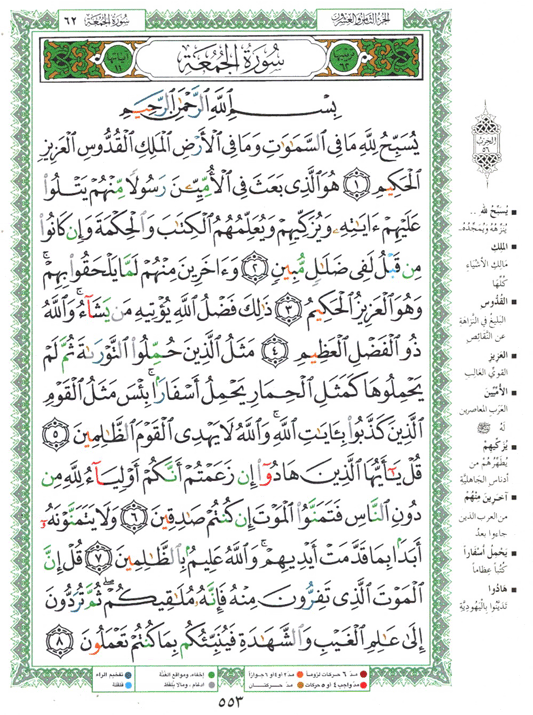 الجزء الثامن والعشرون
سورة الجمعة ٦٢
سُورَةُ الجُمُعَةِ
بِسْمِ ٱللَّهِ ٱلرَّحْمَٰنِ ٱلرَّحِيمِ
يُسَبِّحُ لِلَّهِ مَا فِى ٱلسَّمَٰوَٰتِ وَمَا فِى ٱلْأَرْضِ ٱلْمَلِكِ ٱلْقُدُّوسِ ٱلْعَزِيزِ
ٱلْحَكِيمِ ١ هُوَ ٱلَّذِى بَعَثَ فِى ٱلْأُمِّيِّـۧنَ رَسُولًا مِّنْهُمْ يَتْلُوا۟
عَلَيْهِمْ ءَايَٰتِهِۦ وَيُزَكِّيهِمْ وَيُعَلِّمُهُمُ ٱلْكِتَٰبَ وَٱلْحِكْمَةَ وَإِن كَانُوا۟
مِن قَبْلُ لَفِى ضَلَٰلٍ مُّبِينٍ ٢ وَءَاخَرِينَ مِنْهُمْ لَمَّا يَلْحَقُوا۟ بِهِمْ ۚ
وَهُوَ ٱلْعَزِيزُ ٱلْحَكِيمُ ٣ ذَٰلِكَ فَضْلُ ٱللَّهِ يُؤْتِيهِ مَن يَشَآءُ ۚ وَٱللَّهُ
ذُو ٱلْفَضْلِ ٱلْعَظِيمِ ٤ مَثَلُ ٱلَّذِينَ حُمِّلُوا۟ ٱلتَّوْرَىٰةَ ثُمَّ لَمْ
يَحْمِلُوهَا كَمَثَلِ ٱلْحِمَارِ يَحْمِلُ أَسْفَارًۢا ۚ بِئْسَ مَثَلُ ٱلْقَوْمِ
ٱلَّذِينَ كَذَّبُوا۟ بِـَٔايَٰتِ ٱللَّهِ ۚ وَٱللَّهُ لَا يَهْدِى ٱلْقَوْمَ ٱلظَّٰلِمِينَ ٥
قُلْ يَٰٓأَيُّهَا ٱلَّذِينَ هَادُوٓا۟ إِن زَعَمْتُمْ أَنَّكُمْ أَوْلِيَآءُ لِلَّهِ مِن
دُونِ ٱلنَّاسِ فَتَمَنَّوُا۟ ٱلْمَوْتَ إِن كُنتُمْ صَٰدِقِينَ ٦ وَلَا يَتَمَنَّوْنَهُۥٓ
أَبَدًۢا بِمَا قَدَّمَتْ أَيْدِيهِمْ ۚ وَٱللَّهُ عَلِيمٌۢ بِٱلظَّٰلِمِينَ ٧ قُلْ إِنَّ
ٱلْمَوْتَ ٱلَّذِى تَفِرُّونَ مِنْهُ فَإِنَّهُۥ مُلَٰقِيكُمْ ۖ ثُمَّ تُرَدُّونَ
إِلَىٰ عَٰلِمِ ٱلْغَيْبِ وَٱلشَّهَٰدَةِ فَيُنَبِّئُكُم بِمَا كُنتُمْ تَعْمَلُونَ ٨
الحزب
٥٦
يُسَبِّحُ لله ..
يُنَزِّهُهُ ويُمَجِّدُهُ..
الملك
مَالِك الأشْيَاءِ
كُلِّهَا
القُدُّوس
البليغ في النَّزاهة
عن النَّقائِص
العزيز
القويّ الغالب
الأُمِّيّين
العَرَب المعاصرين
لَهُ ﷺ
يُزَكِّيهم
يُطَهِّرُهُمْ من
أدناس الجاهليَّة
آخَرِينَ مِنْهُمْ
من العرب الذين
جاءوا بعدُ
يَحْمِلُ أسْفَاراً
كُتُباً عِظاماً
هَادُوا
تَدَيَّنُوا باليَهُودِيَّةِ
مدّ ٦ حركات لزوماً
مدّ ٢ أو ٤ أو ٦ جوازاً
إخفاء، ومواقع الغُنَّة
تفخيم الراء
مدّ واجب ٤ أو ٥ حركات
مدّ حركتان
إدغام ، وما لا يُلفَظ
قلقلة
٥٥٣